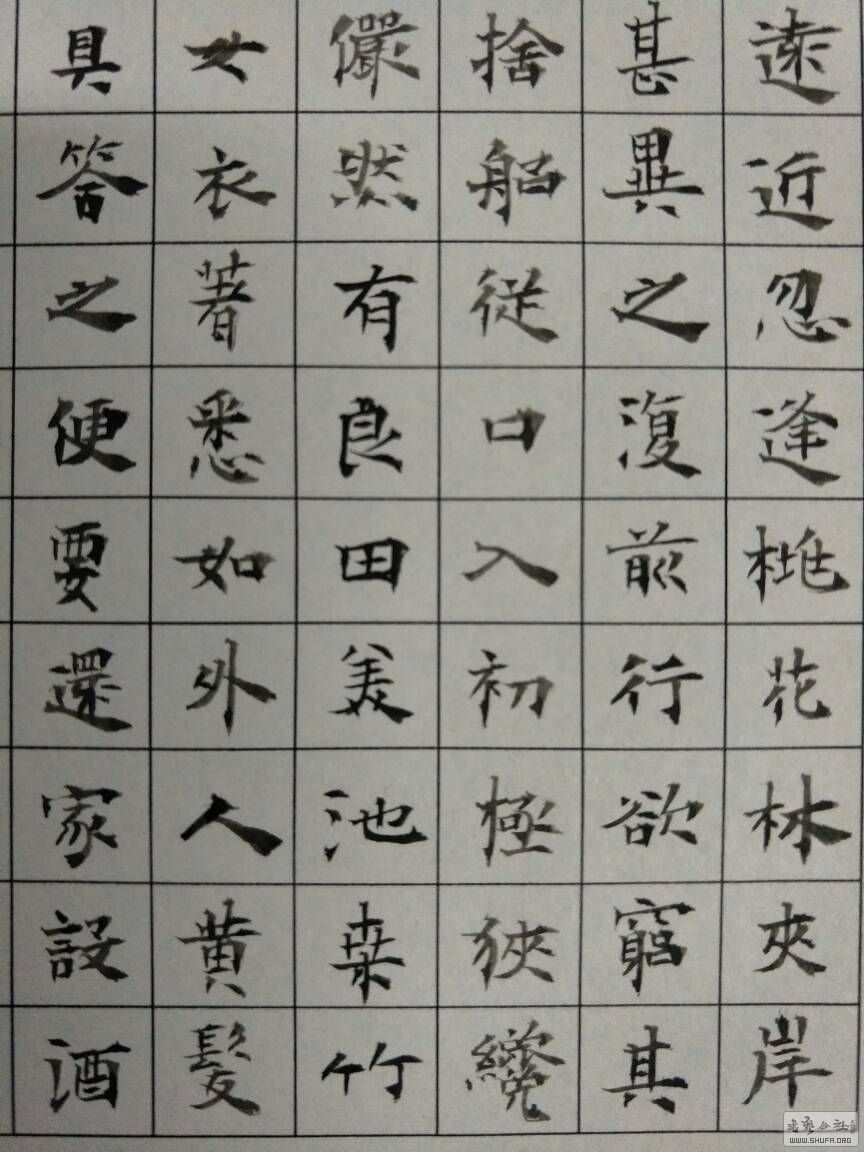 遠近忽逢桃花林夾岸
甚異之復前行欲窮其
捨船從口入初極狹纔
儼然有良田美池桑竹
女衣著悉如外人黄髮
具答之便要還家設酒
WWW.SHUFA.ORG